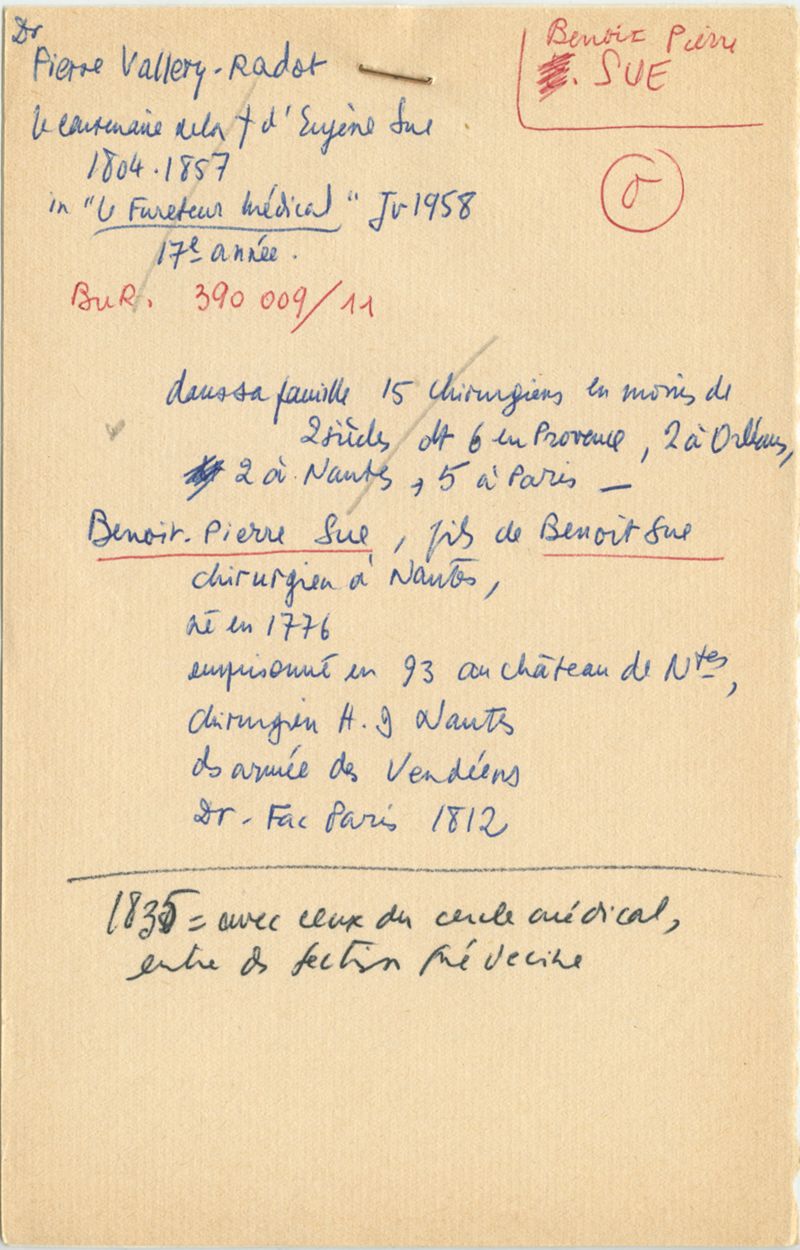 Dr
Pierre Vallery-Radot
le centenaire de la † d'Eugène Sue
1804.1857
in "Le Fureteur Médical" Jv 1958
17e année.
BUR. 390 009/11
Benoit Pierre
SUE
dans sa famille 15 chirurgiens en moins de
2 siècles dt 6 en Provence, 2 à Orléans,
2 à Nantes, 5 à Paris —
Benoit-Pierre Sue, fils de Benoit Sue
chirurgien à Nantes,
né en 1776
emprisonné en 93 au château de Ntes,
chirurgien H. D Nantes
ds armée des Vendéens
Dr. Fac Paris 1812
1835 = avec ceux du cercle médical,
entre ds section Médecine